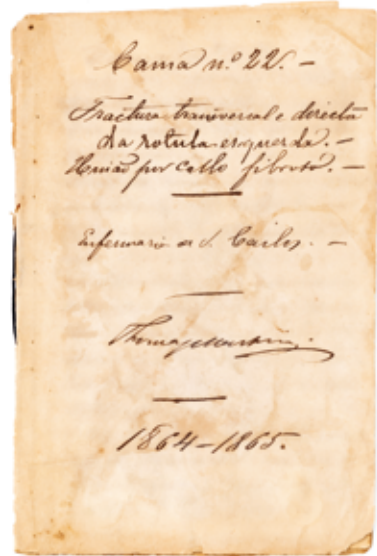 Cama nº 22. –
Fractura transversal e directa
da rotula esquerda. –
União por callo fibroso. –
Enfermaria de S. Carlos. –
1864–1865.